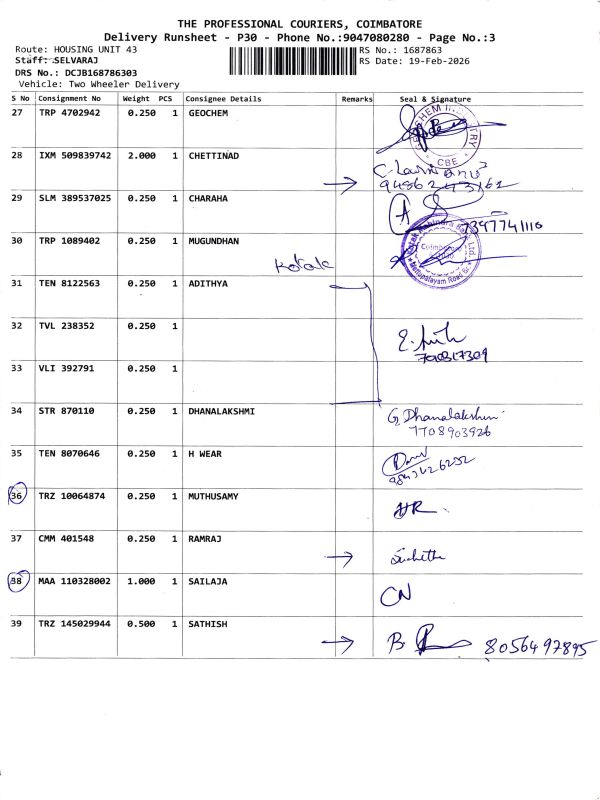 THE PROFESSIONAL COURIERS, COIMBATORE
Delivery Runsheet - P30 - Phone No.:9047080280 - Page No.:3
Route: HOUSING UNIT 43 RS No.: 1687863
Staff: SELVARAJ RS Date: 19-Feb-2026
DRS No.: DCJB168786303
Vehicle: Two Wheeler Delivery
S No Consignment No Weight PCS Consignee Details Remarks Seal & Signature
27 TRP 4702942 0.250 1 GEOCHEM
CBE
28 IXM 509839742 2.000 1 CHETTINAD
29 SLM 389537025 0.250 1 CHARAHA
A
7397741110
30 TRP 1089402 0.250 1 MUGUNDHAN
Kotak
Kotak Mahindra Bank Ltd.
Coimbatore
Mettupalayam Road Br.
31 TEN 8122563 0.250 1 ADITHYA
32 TVL 238352 0.250 1
33 VLI 392791 0.250 1
34 STR 870110 0.250 1 DHANALAKSHMI
G. Dhanalakshmi
7708903926
35 TEN 8070646 0.250 1 H WEAR
36 TRZ 10064874 0.250 1 MUTHUSAMY
37 CMM 401548 0.250 1 RAMRAJ
38 MAA 110328002 1.000 1 SAILAJA
CN
39 TRZ 145029944 0.500 1 SATHISH
B 8056497895